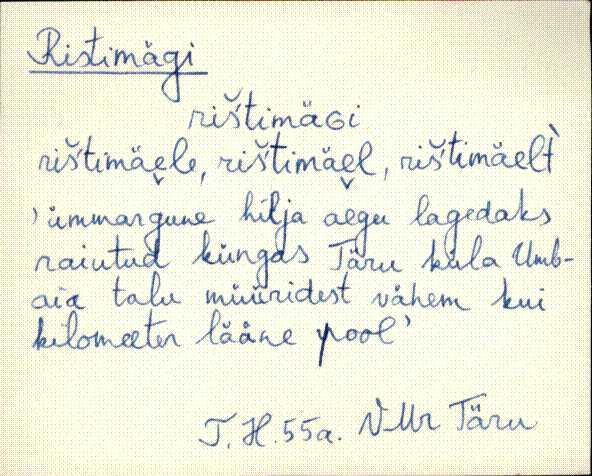 Ristimägi
rištimäɢi
rištimäe̬le, rištimäe̬l, rištimäelt̀
'ümmargune hilja aegu lagedaks
raiutud küngas Täru küla Umb-
aia talu müüridest vähem kui
kilomeeter lääne pool'
T. H. 55a. V-Mr Täru